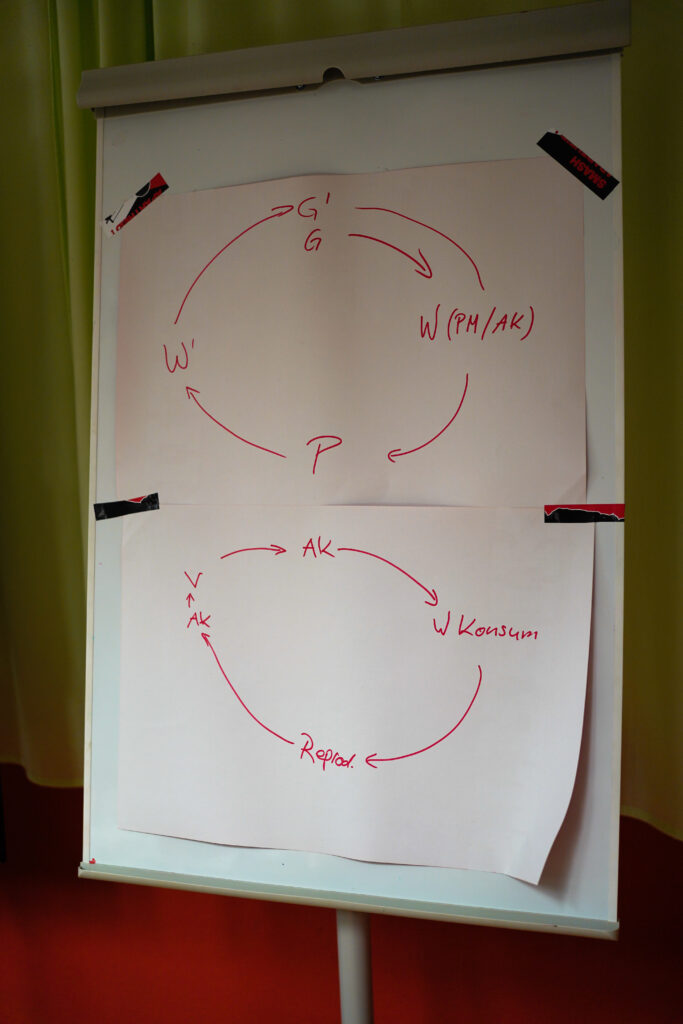 SMASH
G'
G
W (PM/AK)
W'
P
AK
V
AK
W Konsum
Reprod.